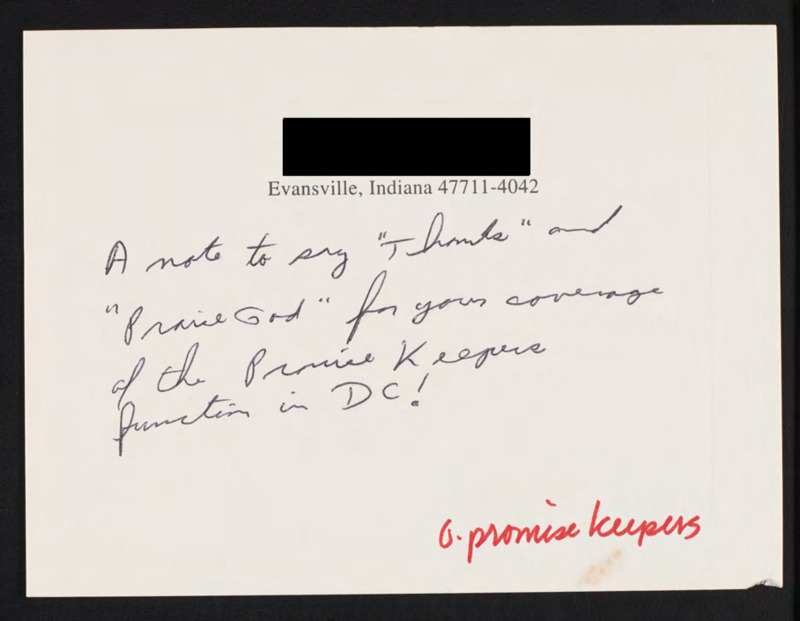 Evansville, Indiana 47711-4042
A note to say "Thanks" and
"Praise God" for your coverage
of the Promise Keepers
function in DC!
o. promise keepers